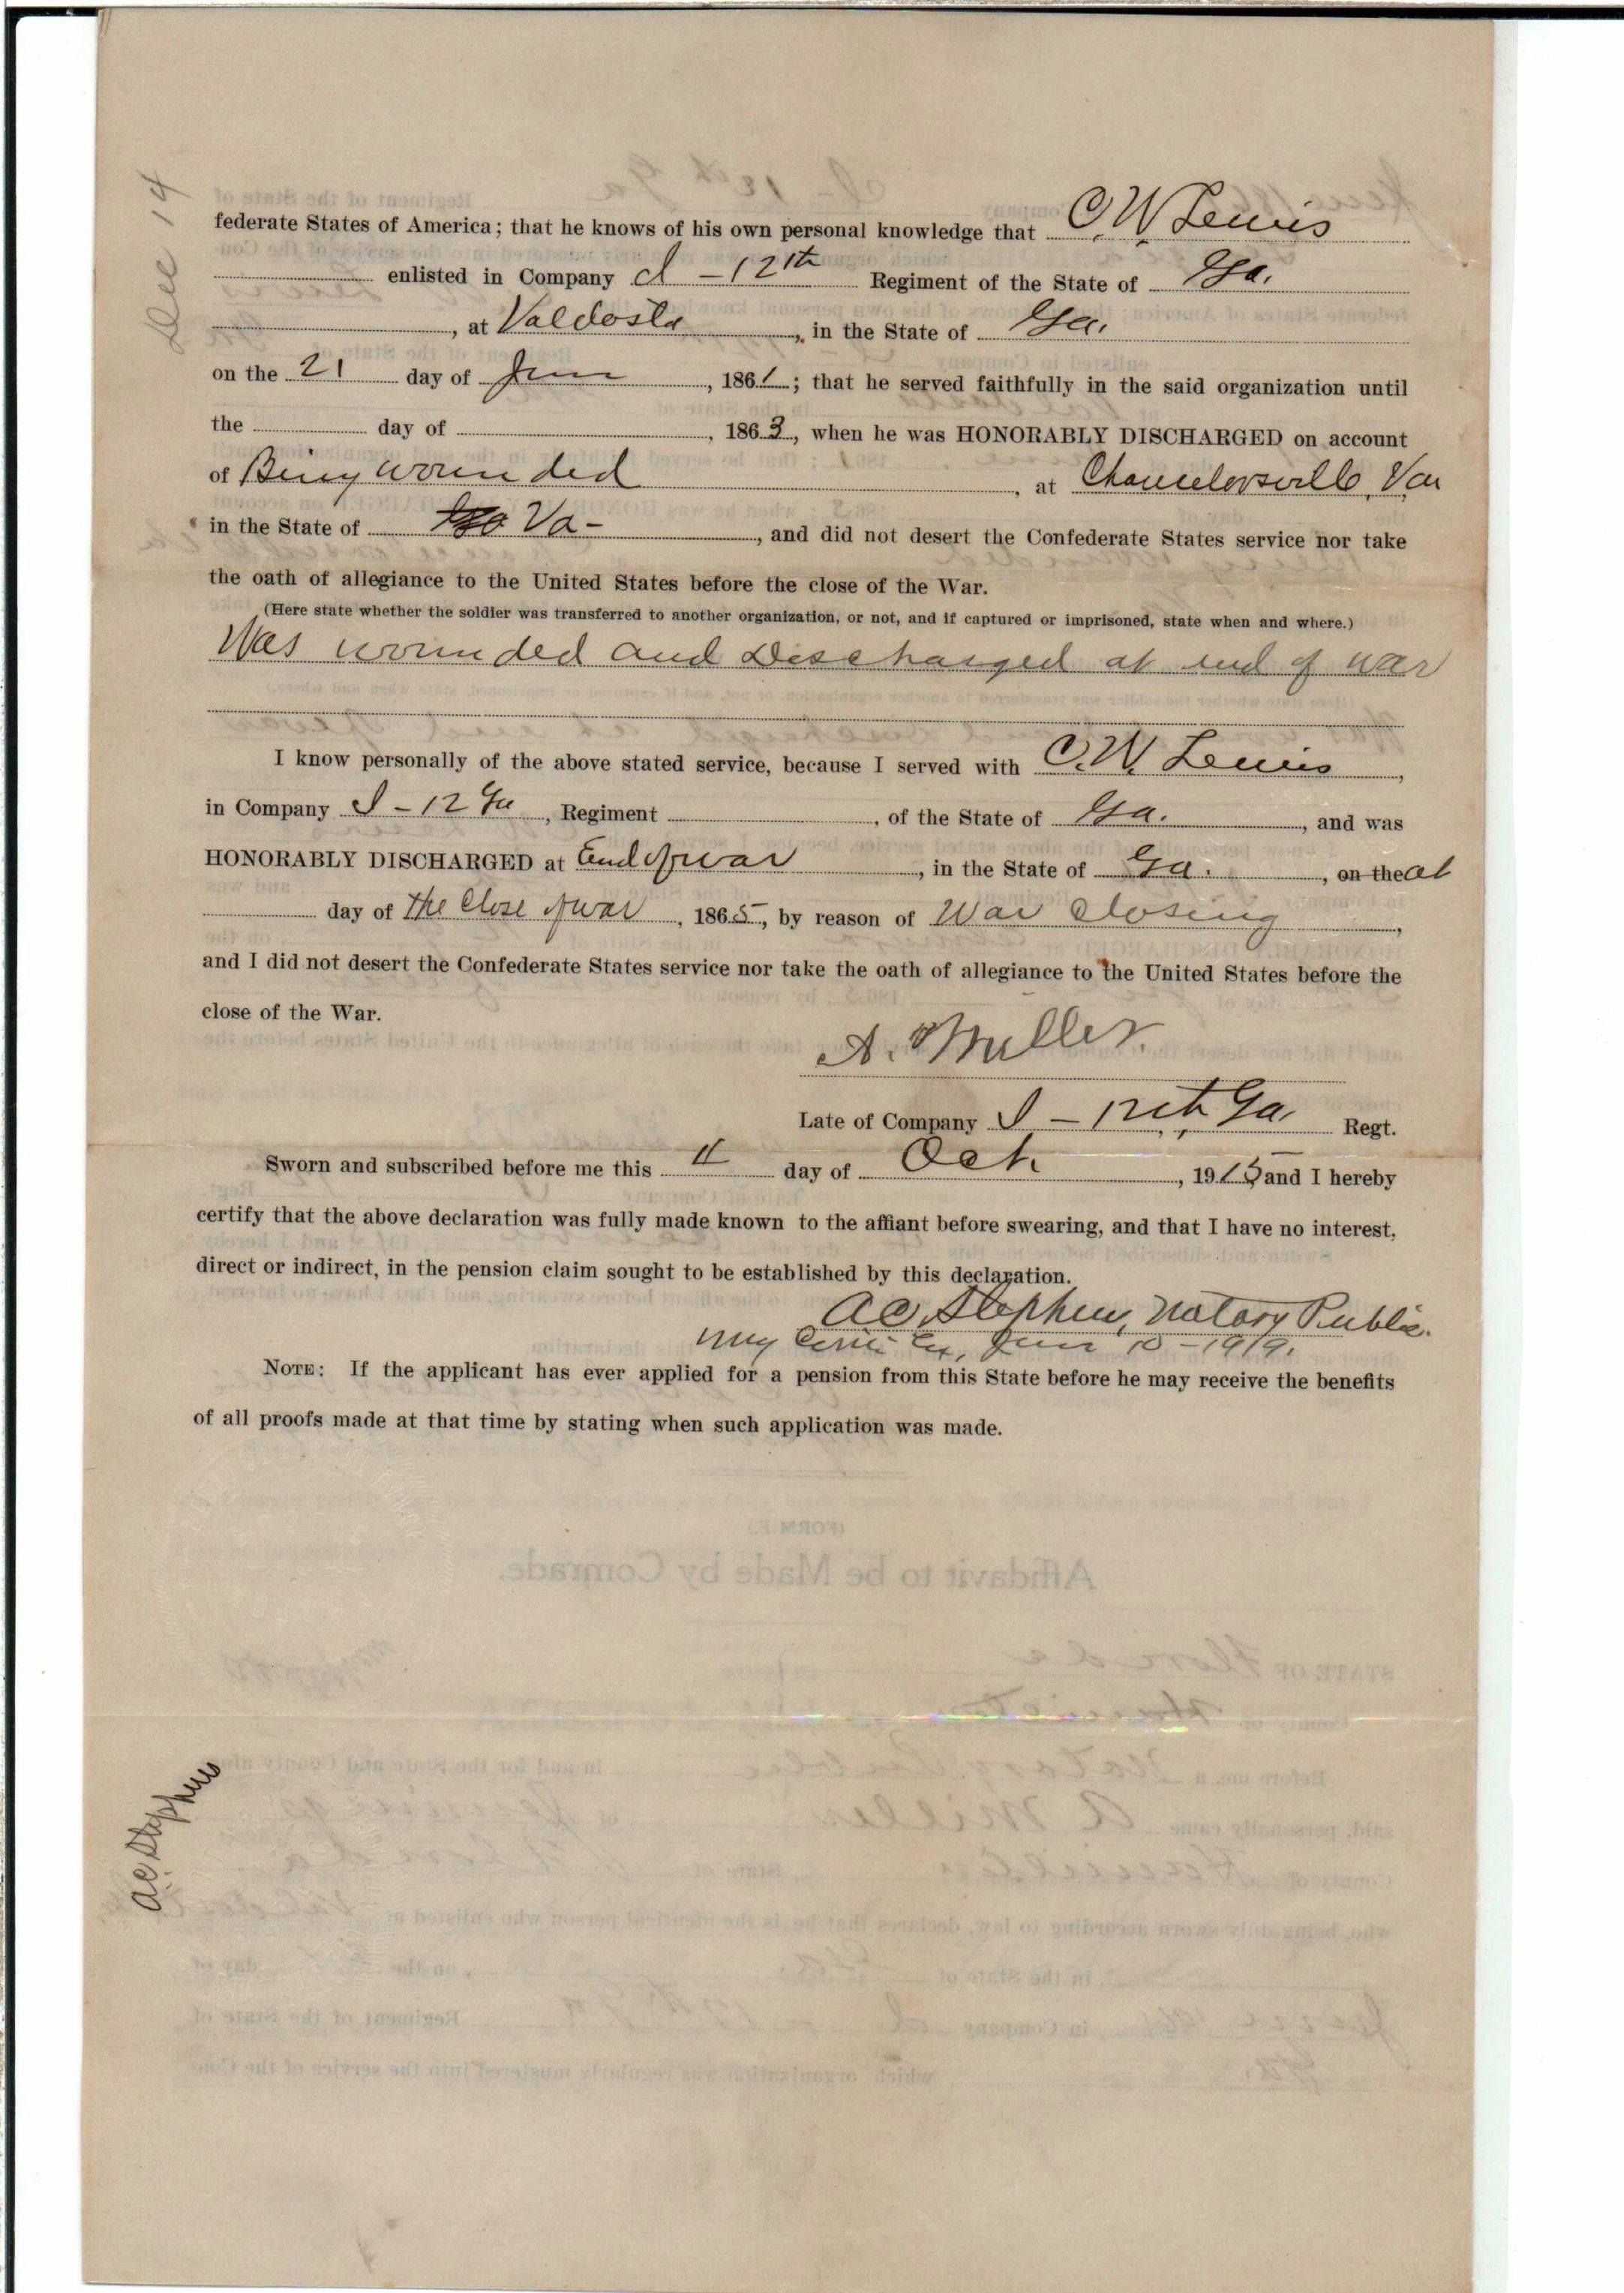 Dec 14
federate States of America; that he knows of his own personal knowledge that C. W. Lewis
enlisted in Company I - 12th Regiment of the State of Ga.
, at Valdosta, in the State of Ga.
on the 21 day of June, 1861; that he served faithfully in the said organization until
the day of , 1863, when he was HONORABLY DISCHARGED on account
of Being wounded, at Chancelorsville, Va
in the State of Va-, and did not desert the Confederate States service nor take
the oath of allegiance to the United States before the close of the War.
(Here state whether the soldier was transferred to another organization, or not, and if captured or imprisoned, state when and where.)
Was wounded and Discharged at end of war
I know personally of the above stated service, because I served with C. W. Lewis,
in Company I - 12 Ga, Regiment , of the State of Ga., and was
HONORABLY DISCHARGED at End of war, in the State of Ga., on the at
day of the Close of war, 1865, by reason of War Closing,
and I did not desert the Confederate States service nor take the oath of allegiance to the United States before the
close of the War.
A. Miller.
Late of Company I - 12th Ga, Regt.
Sworn and subscribed before me this day of Oct., 1915 and I hereby
certify that the above declaration was fully made known to the affiant before swearing, and that I have no interest,
direct or indirect, in the pension claim sought to be established by this declaration.
A C Stephens, Notary Public.
My Com Ex, June 10 - 1919.
NOTE: If the applicant has ever applied for a pension from this State before he may receive the benefits
of all proofs made at that time by stating when such application was made.
A C Stephens